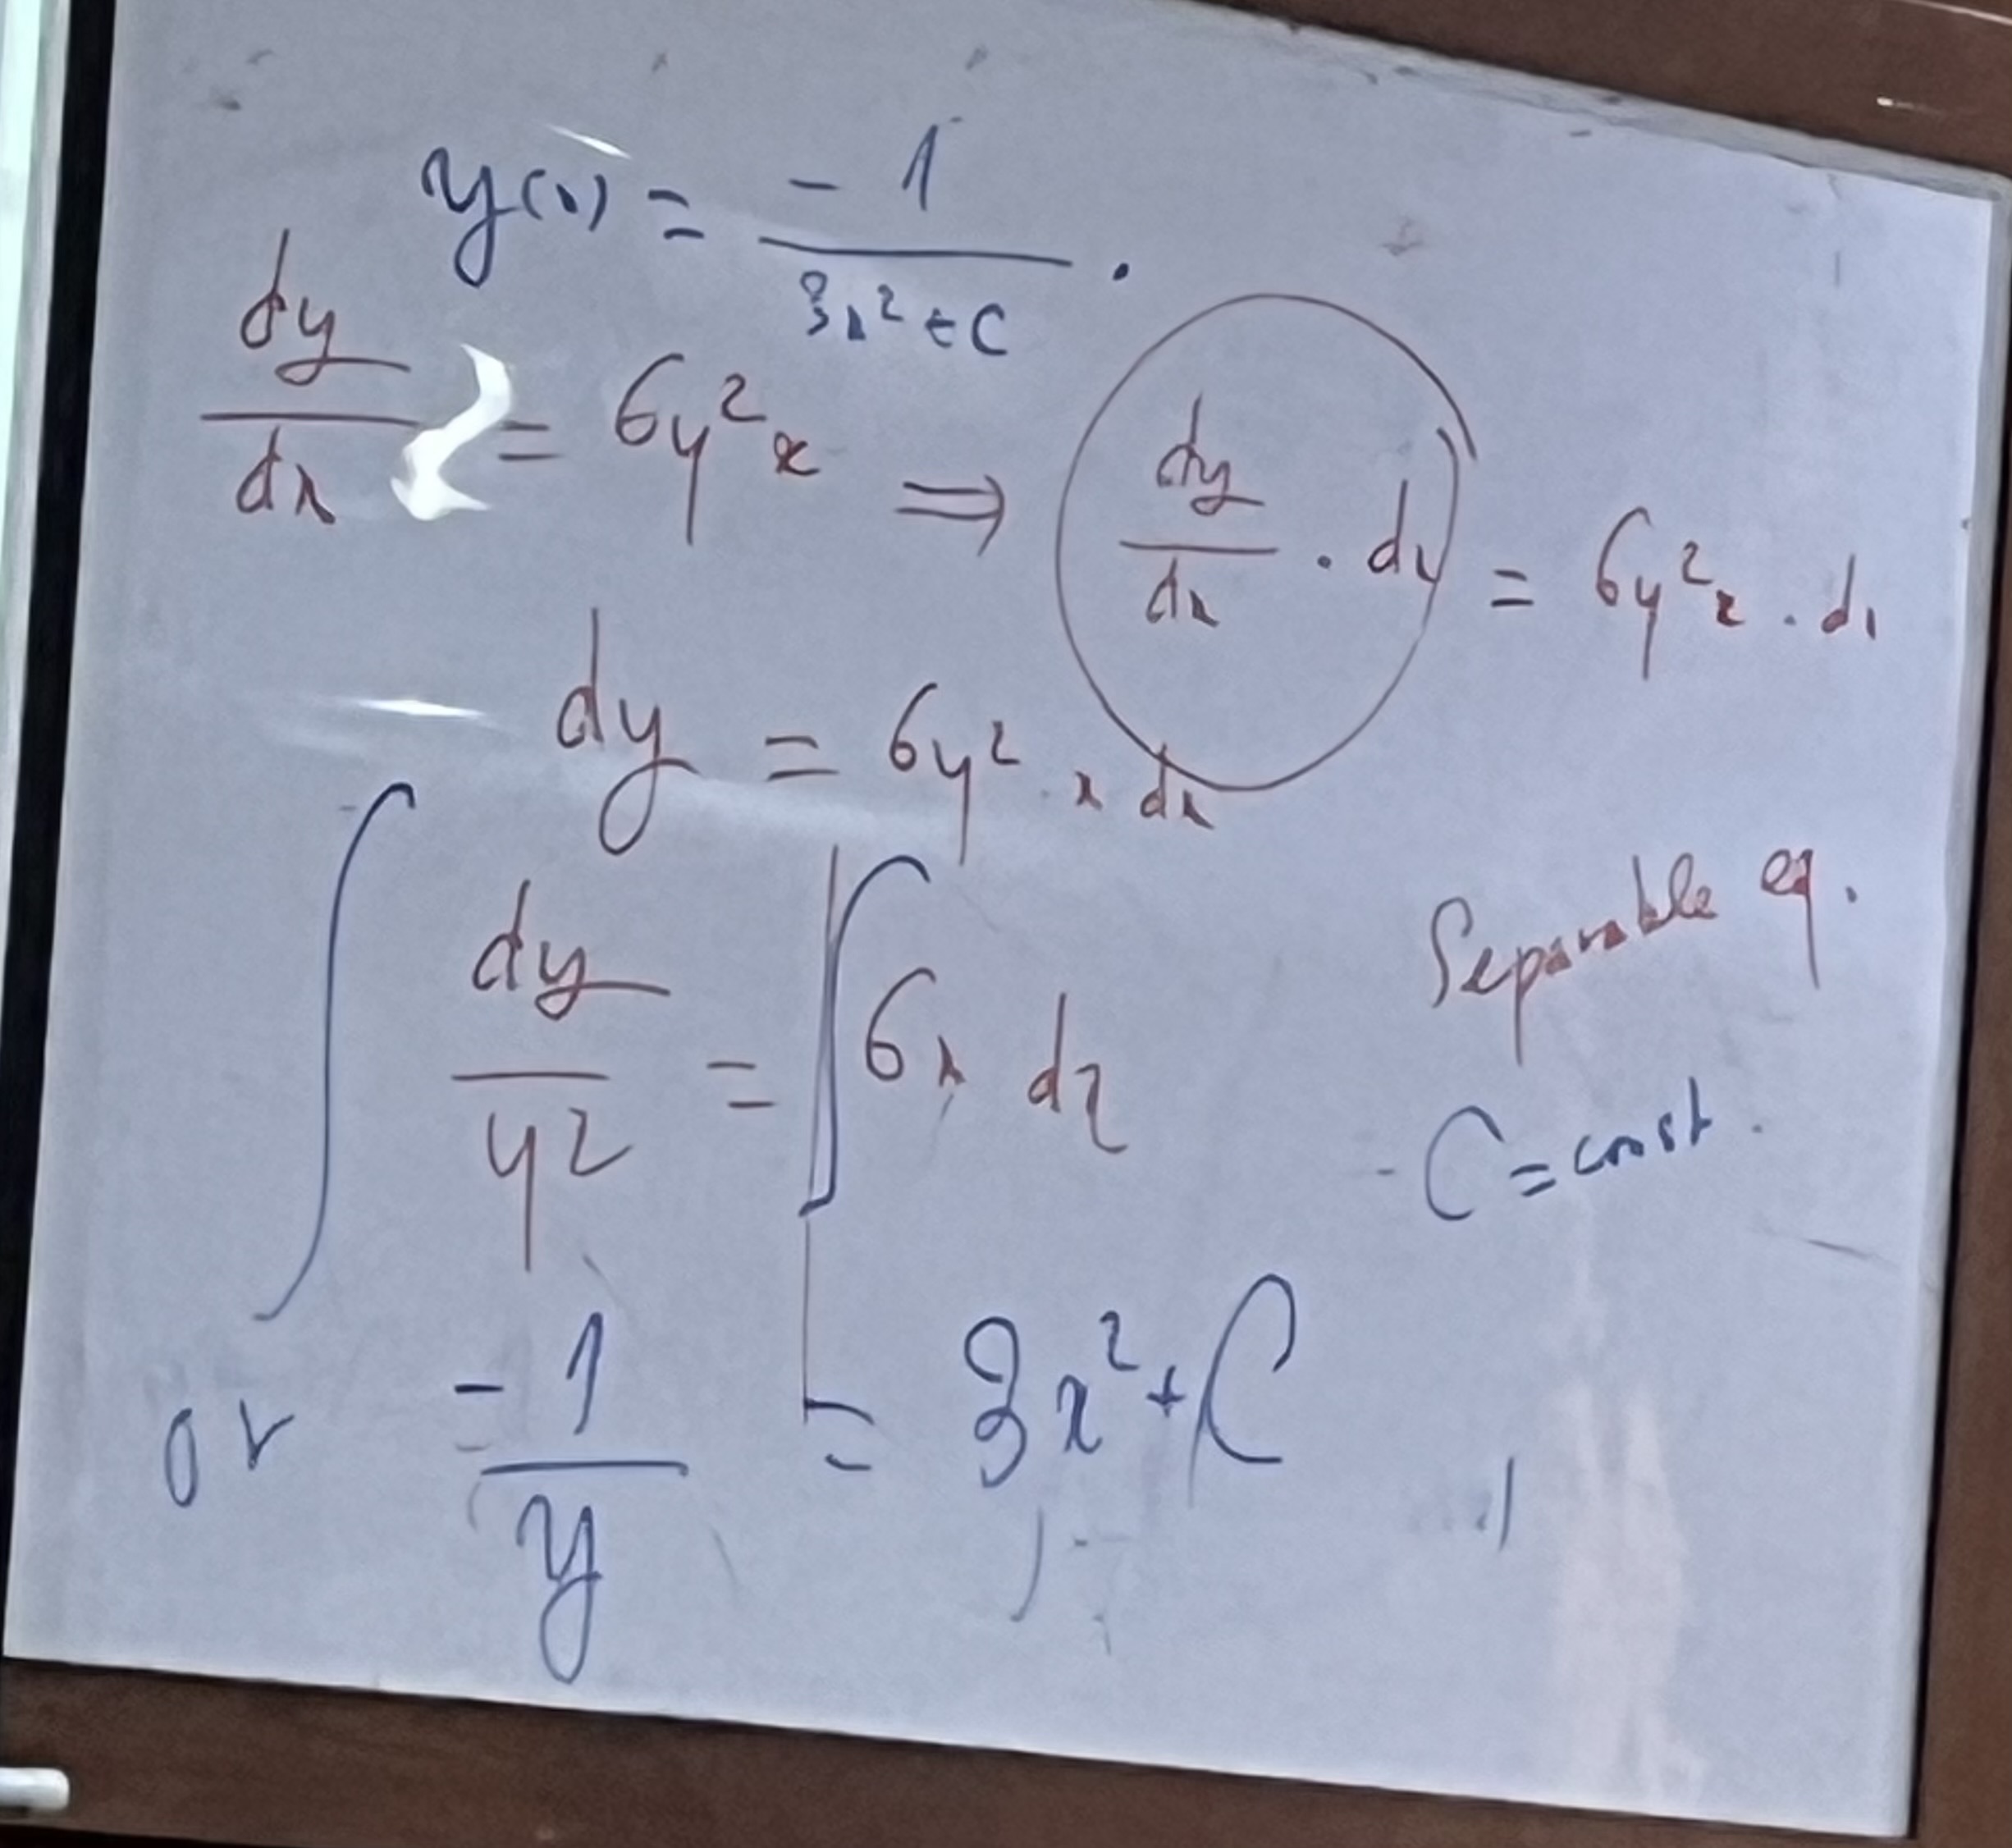 y(x) = -1 / 3x² + C .
dy/dx = 6y²x ⇒ dy/dx · dx = 6y²x · dx
dy = 6y² · x dx
∫ dy/y² = ∫ 6x dx
Separable eq.
C = const.
or -1/y = 3x² + C